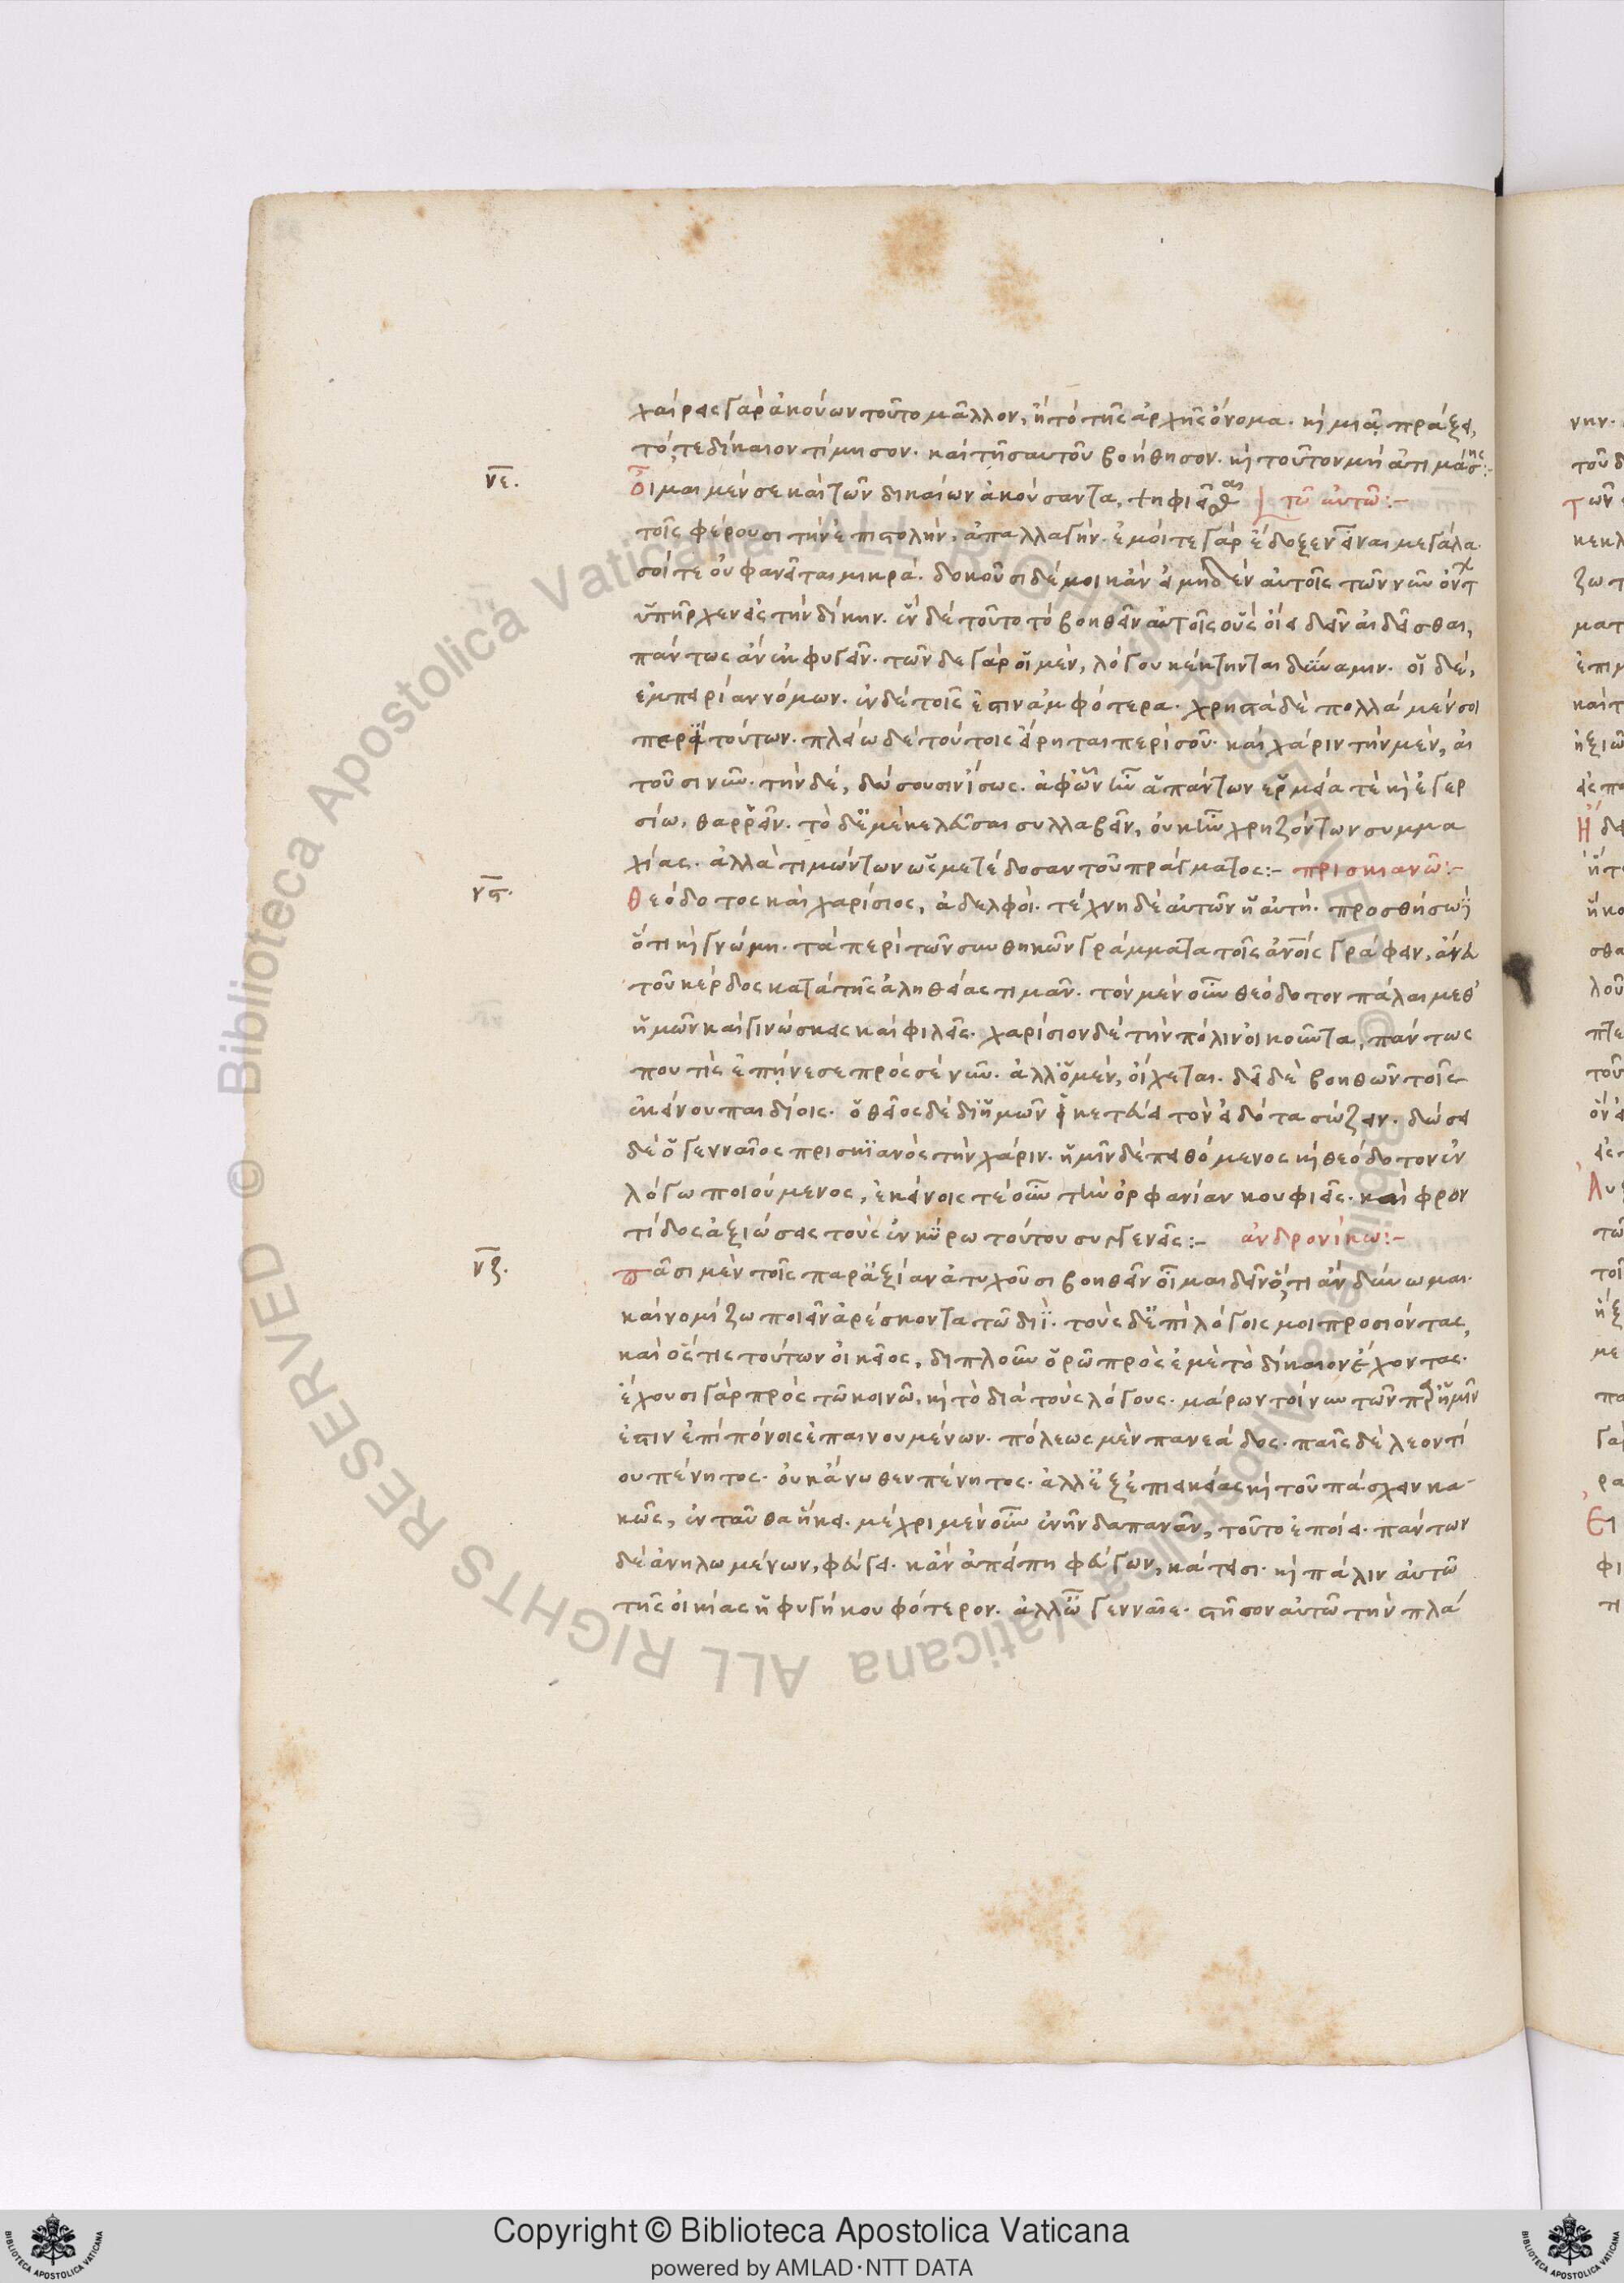 χαίρεις γὰρ ἀκούων τοῦτο μᾶλλον, ἢ τὸ τῆς ἀρχῆς ὄνομα. κὶ μιᾷ πράξει,
τό, τε δίκαιον τίμησον. καὶ τῆ σαυτοῦ βοήθησον. κὶ τοῦτον μὴ ἀτιμάσης:-
νε.
Οἶμαι μέν σε καὶ τῶν δικαίων ἀκούσαντα, ψηφιεῖσθαι τῶ αὐτῶ:-
τοῖς φέρουσι τὴν ἐπιστολὴν, ἀπαλλαγήν. ἐμοί τε γὰρ ἔδοξεν εἶναι μεγάλα.
σοί τε οὐ φανεῖται μικρά. δοκοῦσι δέ μοι κἂν εἰ μηδὲν αὐτοῖς τῶν νῦν ὄντ
ὑπῆρχεν εἰς τὴν δίκην. ἓν δὲ τοῦτο τὸ βοηθεῖν αὐτοῖς οὓς οἴει δεῖν αἰδεῖσθαι,
πάντως ἂν ἐκφυγεῖν. τῶνδε γὰρ οἱ μὲν, λόγου κέκτηνται δύναμιν. οἱ δὲ,
ἐμπειρίαν νόμων. ἐν δὲ τοῖς ἐστιν ἀμφότερα. χρηστὰ δὲ πολλὰ μὲν σοι
περὶ τούτων. πλείω δὲ τούτοις εἴρηται περὶ σοῦ. καὶ χάριν τὴν μὲν, αἰ
τοῦσι νῦν. τὴν δὲ, δώσουσιν ἴσως. ἀφ' ὧν ἦν ἁπάντων ἑρμεία τὲ κὶ ἐγερ
σίω, θαρρεῖν. τὸ δ' ἐμὲ κελεῦσαι συλλαβεῖν, οὐκ ἦν χρηζόντων συμμα
χίας. ἀλλὰ τιμώντων ὥς με τέδοσαν τοῦ πράγματος:- πρισκιανῶ:-
νϛ.
Θεόδοτος καὶ χαρίσιος, ἀδελφοί. τέχνη δὲ αὐτῶν ἡ αὐτή. προσθήσω δ'
ὅτι κὶ γνώμη. τὰ περὶ τῶν συνθηκῶν γράμματα τοῖς ἀνοῖς γράφειν, ἄνευ
τοῦ κέρδος κατὰ τῆς ἀληθείας τιμᾶν. τὸν μὲν οὖν θεόδοτον πάλαι μεθ'
ἡμῶν καὶ γινώσκεις καὶ φιλεῖς. χαρίσιον δὲ τὴν πόλιν οἰκοῦντα, πάντως
που τὶς ἐπήνεσε πρὸς σὲ νῦν. ἀλλ' ὁ μὲν, οἴχεται. δεῖ δὲ βοηθῶν τοῖς
ἐκείνου παιδίοις. ὁ θεῖος δὲ δι' ἡμῶν ἱκετεύει τὸν εἰδότα σώζειν. δώσει
δὲ ὁ γενναῖος πρισκιανὸς τὴν χάριν. ἡμῖν δὲ πειθόμενος κὶ θεόδοτον ἐν
λόγω ποιούμενος, ἐκείνοις τὲ οὖν τὴν ὀρφανίαν κουφιεῖς. καὶ φρον
τίδος ἀξιώσεις τοὺς ἐν κύρω τούτου συγγενεῖς:- ἀνδρονίκω:-
νζ.
Πᾶσι μὲν τοῖς παρ' ἀξίαν ἀτυχοῦσι βοηθεῖν οἶμαι δεῖν ὅ, τι ἂν δύνωμαι.
καὶ νομίζω ποιεῖν ἀρέσκοντα τῶ διί. τοὺς δ' ἐπὶ λόγοις μοι προσιόντας,
καὶ ὅστις τούτων οἰκεῖος, διπλοῦν ὁρῶ πρὸς ἐμὲ τὸ δίκαιον ἔχοντας.
ἔχουσι γὰρ πρὸς τῶ κοινῶ, κὶ τὸ διὰ τοὺς λόγους. μάρων τοίνυν τῶν παρ' ἡμῖν
ἐστιν ἐπὶ πόνοις ἐπαινουμένων. πόλεως μὲν πανεάδος. παῖς δὲ λεοντί
ου πένητος. οὐκ ἄνωθεν πένητος. ἀλλ' ἐξ ἐπιεικείας κὶ τοῦ πάσχειν κα-
κῶς, ἐνταῦθα ἥκει. μέχρι μὲν οὖν ἐνῆν δαπανᾶν, τοῦτο ἐποίει. πάντων
δὲ ἀνηλωμένων, φεύγει. κἂν ἀπείπη φεύγων, κάτεισι. κὶ πάλιν αὐτῶ
τῆς οἰκίας ἡ φυγὴ κουφότερον. ἀλλ' ὦ γενναῖε. στῆσον αὐτῶ τὴν πλά
© Biblioteca Apostolica Vaticana ALL RIGHTS RESERVED
© Biblioteca Apostolica Vaticana ALL RIGHTS RESERVED
Copyright © Biblioteca Apostolica Vaticana
powered by AMLAD・NTT DATA
BIBLIOTECA APOSTOLICA VATICANA
BIBLIOTECA APOSTOLICA VATICANA